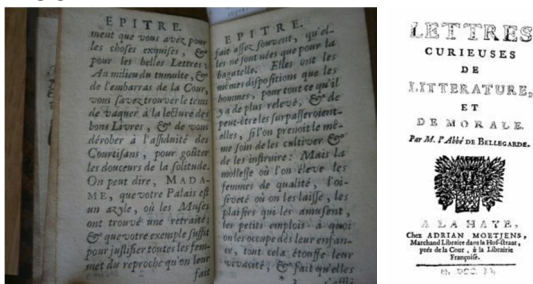 EPITRE.
ment que vous avez pour
les choses exquises, &
pour les belles Lettres;
Au milieu du tumulte, &
de l'embarras de la Cour,
vous sçavez trouver le tems
de vaquer à la lecture des
bons Livres, & de vous
dérober à l'assiduité des
Courtisans, pour goûter
les douceurs de la solitude.
On peut dire, MADA-
ME, que votre Palais est
un azyle, où les Muses
ont trouvé une retraite;
& que votre exemple suffit
pour justifier toutes les fem-
mes du reproche qu'on leur
fait
EPITRE.
fait assez souvent, qu'el-
les ne sont nées que pour la
bagatelle. Elles ont les
mêmes dispositions que les
hommes, pour tout ce qu'il
y a de plus relevé, & de
peut-être les surpasseroient-
elles, si l'on prenoit le mê-
me soin de les cultiver &
de les instruire: Mais la
mollesse où l'on éleve les
femmes de qualité, l'oi-
siveté où on les laisse, les
plaisirs qui les amusent,
les petits emplois à quoi
on les occupe dès leur enfan-
ce, tout cela étouffe leur
vivacité; & fait qu'elles
LETTRES
CURIEUSES
DE
LITTERATURE,
ET
DE MORALE.
Par M. l'Abbé DE BELLEGARDE.
A LA HAYE,
Chez ADRIAN MOETJENS,
Marchand Libraire dans la Hof-straat,
près de la Cour, à la Librairie
Françoise.
M. DCC.